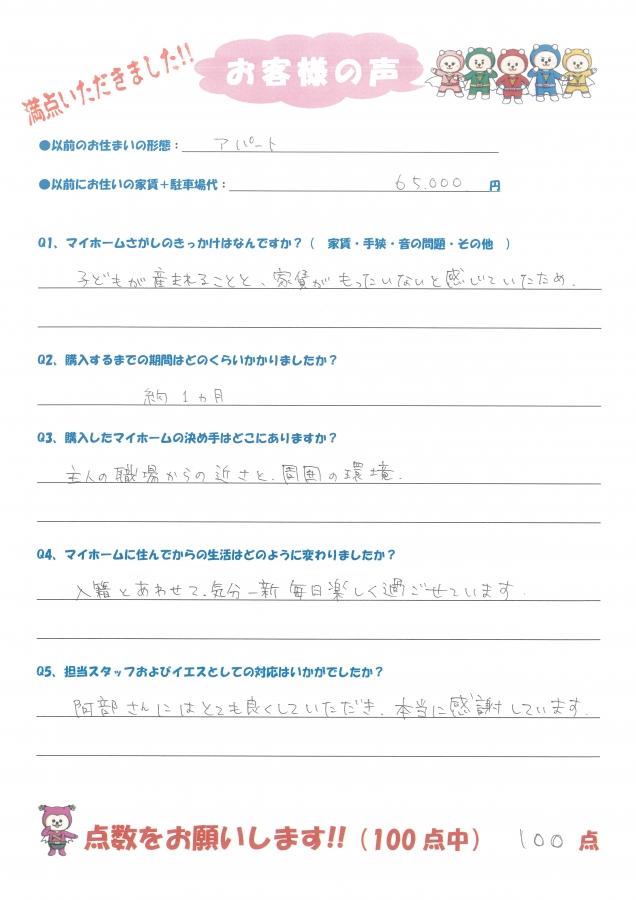 満点いただきました!!
お客様の声
●以前のお住まいの形態： アパート
●以前にお住いの家賃＋駐車場代： 65,000 円
Q1、マイホームさがしのきっかけはなんですか？（ 家賃・手狭・音の問題・その他 ）
子どもが産まれることと、家賃がもったいないと感じていたため.
Q2、購入するまでの期間はどのくらいかかりましたか？
約1ヵ月
Q3、購入したマイホームの決め手はどこにありますか？
主人の職場からの近さと、周囲の環境.
Q4、マイホームに住んでからの生活はどのように変わりましたか？
入籍とあわせて、気分一新 毎日楽しく過ごせています.
Q5、担当スタッフおよびイエストしての対応はいかがでしたか？
阿部さんにはとても良くしていただき、本当に感謝しています.
点数をお願いします!!（100点中） 100 点